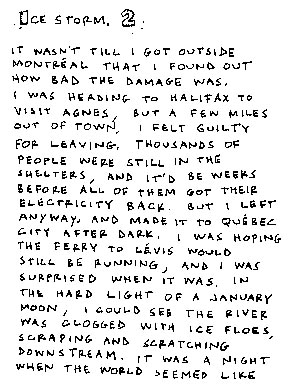 ICE STORM. 2.
IT WASN'T TILL I GOT OUTSIDE
MONTRÉAL THAT I FOUND OUT
HOW BAD THE DAMAGE WAS.
I WAS HEADING TO HALIFAX TO
VISIT AGNES, BUT A FEW MILES
OUT OF TOWN, I FELT GUILTY
FOR LEAVING. THOUSANDS OF
PEOPLE WERE STILL IN THE
SHELTERS, AND IT'D BE WEEKS
BEFORE ALL OF THEM GOT THEIR
ELECTRICITY BACK. BUT I LEFT
ANYWAY, AND MADE IT TO QUÉBEC
CITY AFTER DARK. I WAS HOPING
THE FERRY TO LÉVIS WOULD
STILL BE RUNNING, AND I WAS
SURPRISED WHEN IT WAS. IN
THE HARD LIGHT OF A JANUARY
MOON, I COULD SEE THE RIVER
WAS CLOGGED WITH ICE FLOES,
SCRAPING AND SCRATCHING
DOWNSTREAM. IT WAS A NIGHT
WHEN THE WORLD SEEMED LIKE